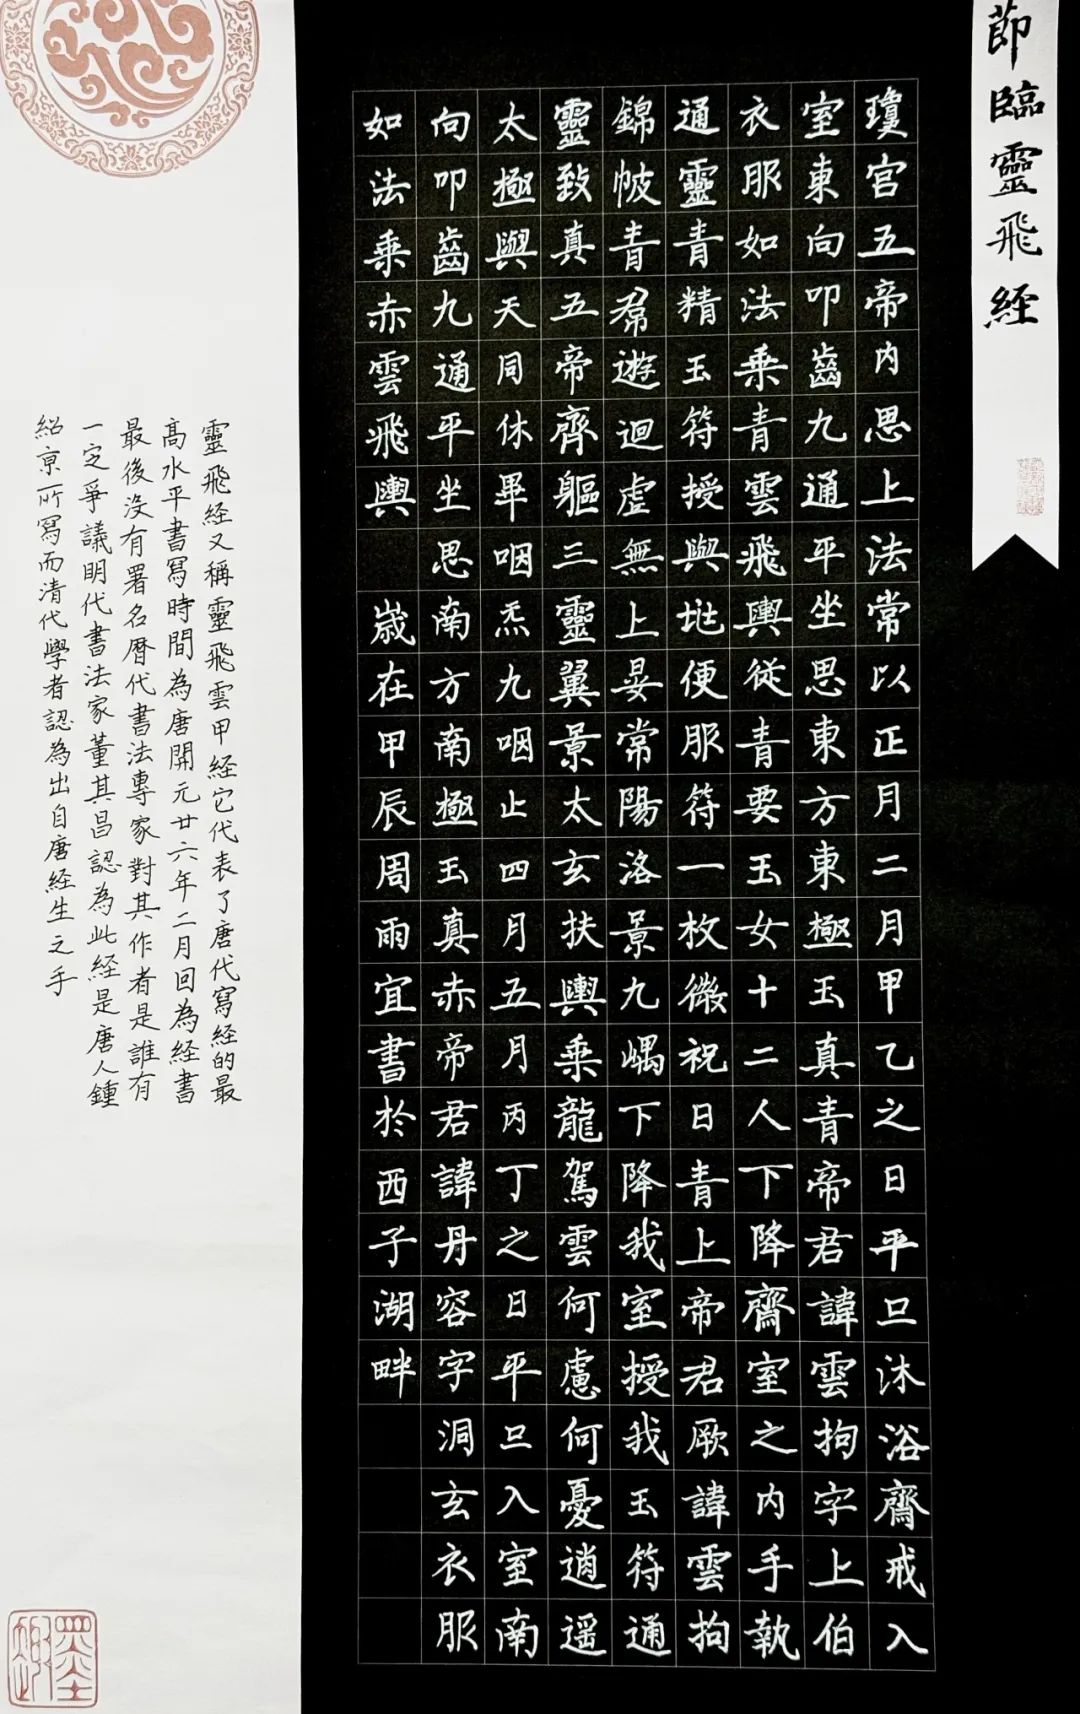 節臨靈飛經
瓊宮五帝內思上法常以正月二月甲乙之日平旦沐浴齋戒入
室東向叩齒九通平坐思東方東極玉真青帝君諱雲拘字上伯
衣服如法乘青雲飛輿從青要玉女十二人下降齋室之內手執
通靈青精玉符授與地便服符一枚微祝曰青上帝君厥諱雲拘
錦帔青帬遊迴虛無上晏常陽洛景九嵎下降我室授我玉符通
靈致真五帝齊軀三靈翼景太玄扶輿乘龍駕雲何慮何憂逍遥
太極與天同休畢咽炁九咽止四月五月丙丁之日平旦入室南
向叩齒九通平坐思南方南極玉真赤帝君諱丹容字洞玄衣服
如法乘赤雲飛輿 歲在甲辰周雨宜書於西子湖畔
靈飛經又稱靈飛雲甲經它代表了唐代寫經的最
高水平書寫時間為唐開元廿六年二月回為經書
最後沒有署名曆代書法專家對其作者是誰有
一定爭議明代書法家董其昌認為此經是唐人鍾
紹京所寫而清代學者認為出自唐經生之手